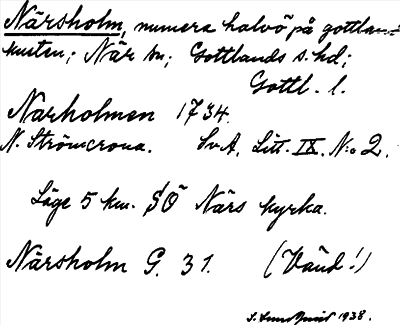 Närsholm, numera halvö på gottlands-
kusten; När sn; Gottlands s. hd;
Gottl. l.
Narholmen 1734.
N. Strömcrona. Sv A, Litt. IX. N:o 2.
Läge 5 km. SÖ Närs kyrka.
Närsholm G. 31. (Vänd!)
1938.